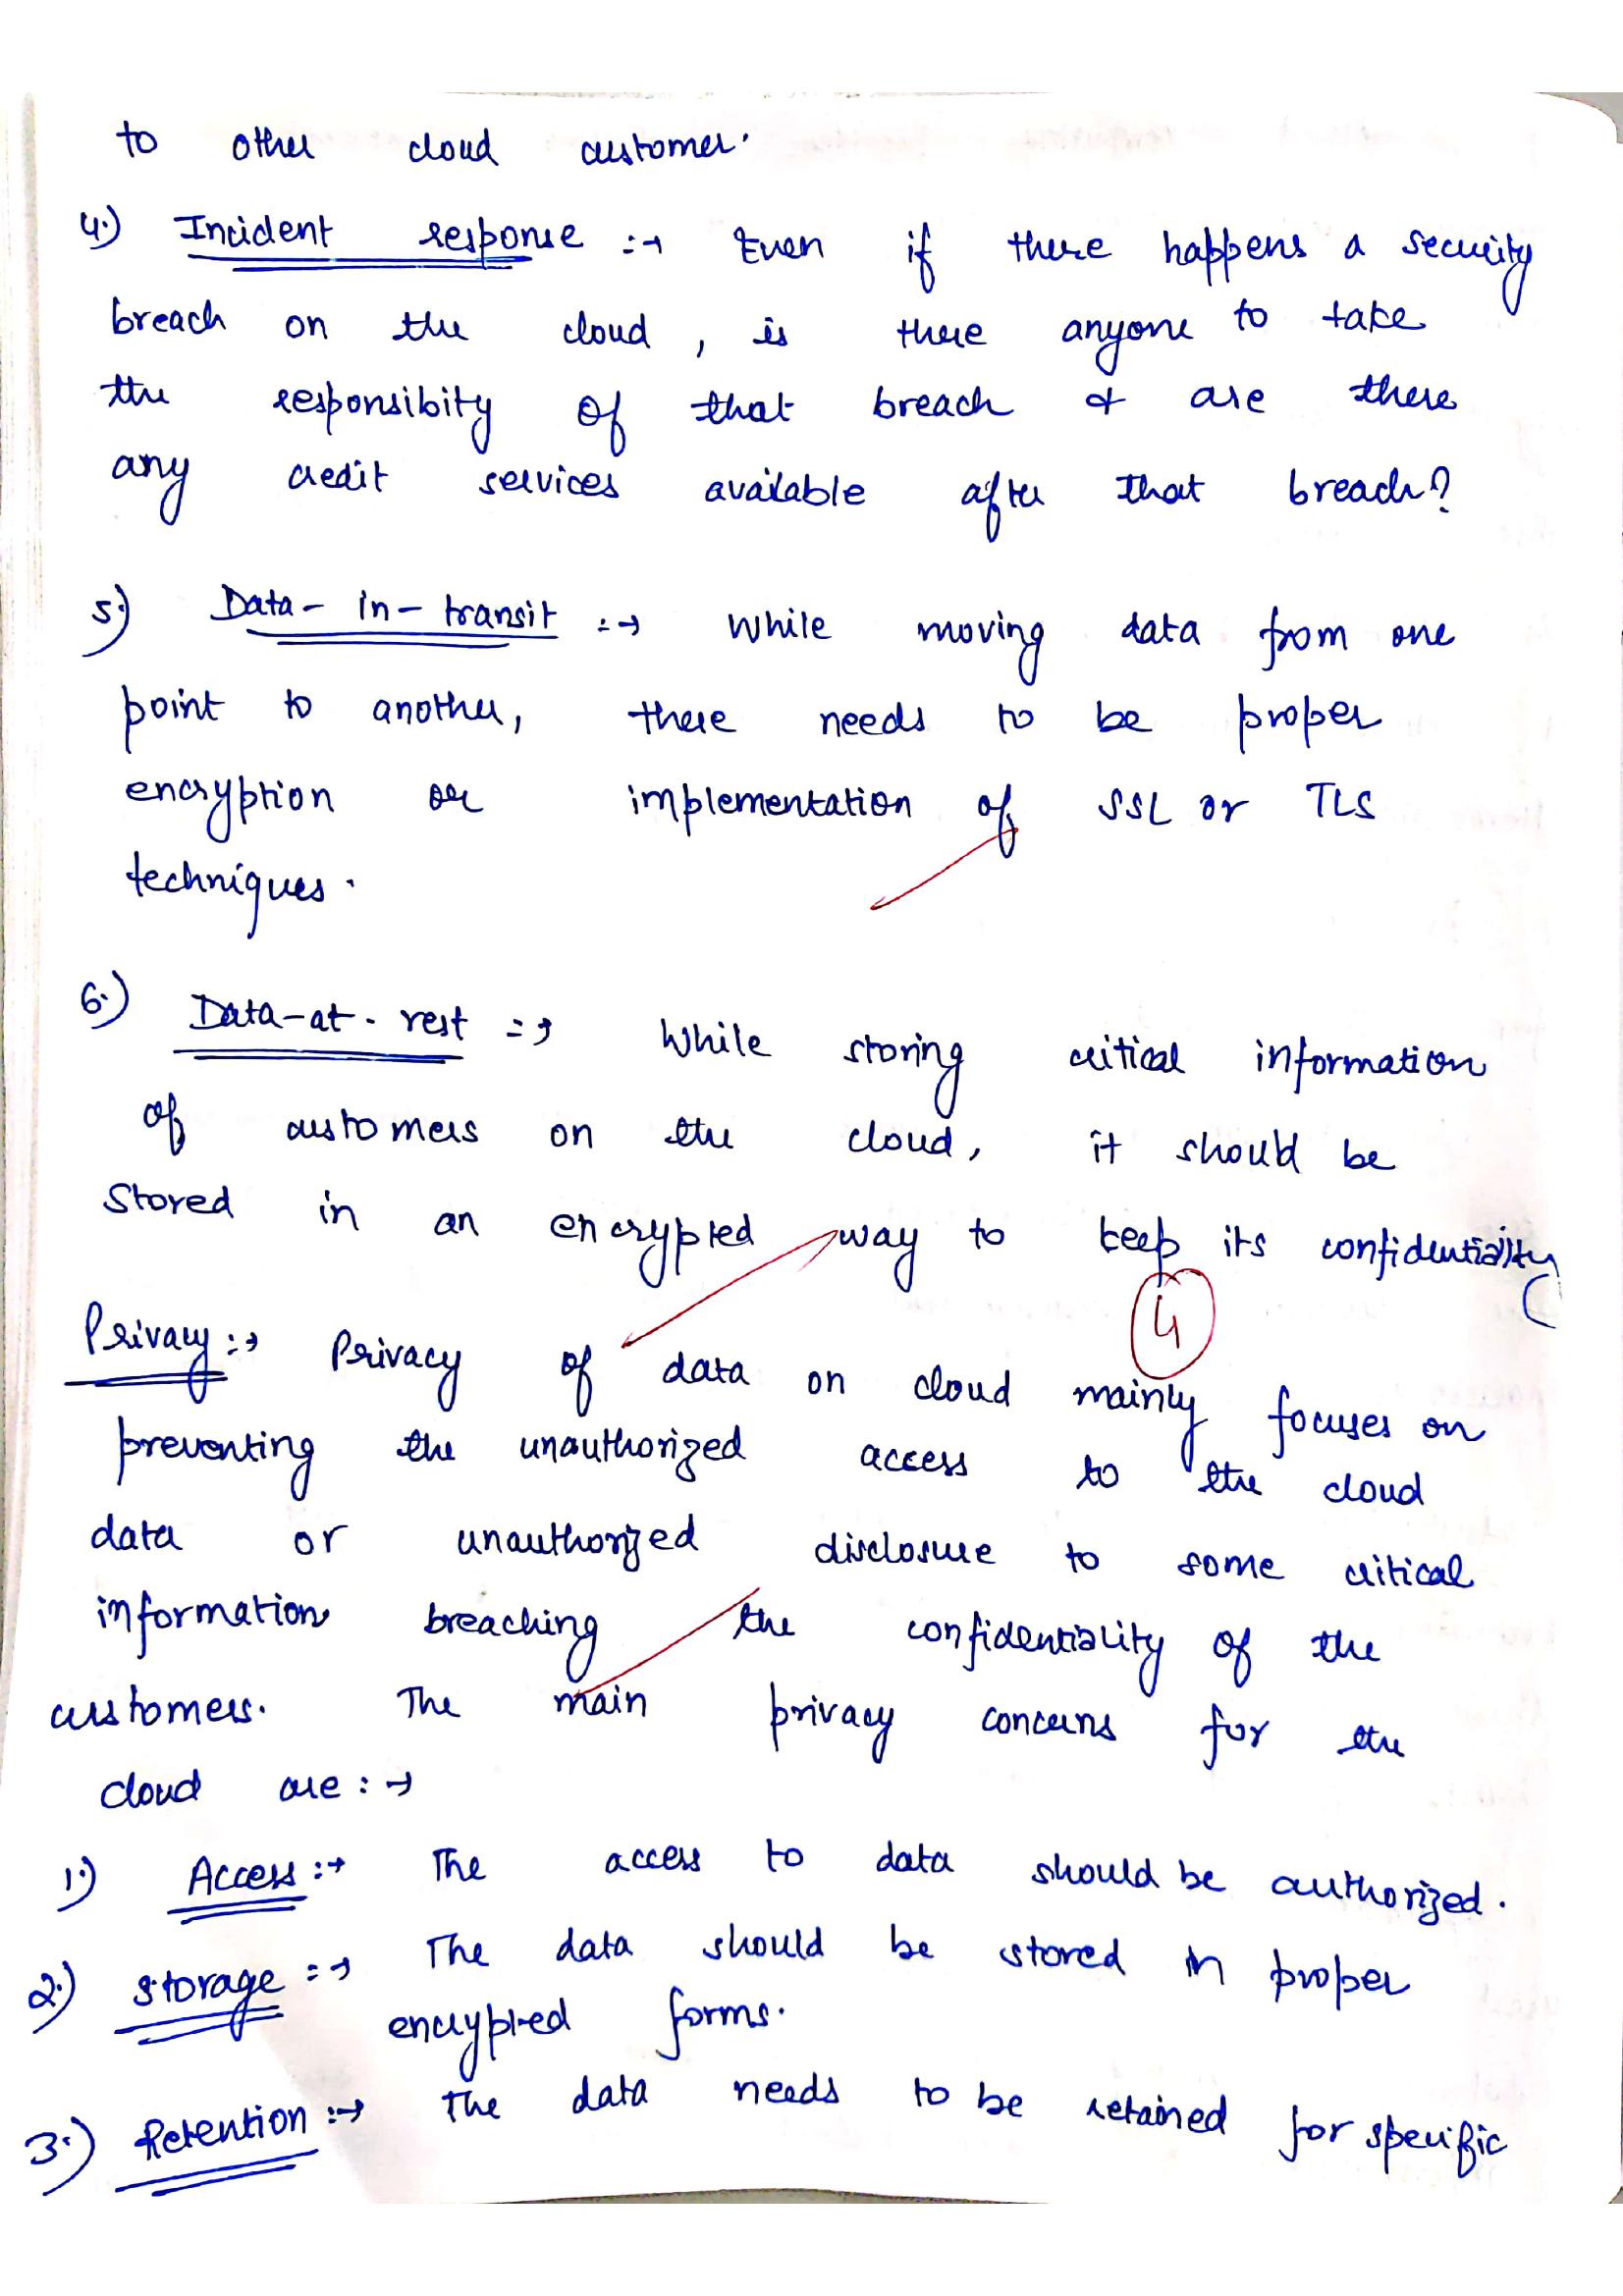 to other cloud customer.
4.) Incident response :→ Even if there happens a security
breach on the cloud, is there anyone to take
the responsibity of that breach & are there
any credit services available after that breach?
5.) Data-in-transit :→ While moving data from one
point to another, there needs to be proper
encryption or implementation of SSL or TLS
techniques.
6.) Data-at-rest :→ While storing critical information
of customers on the cloud, it should be
Stored in an encrypted way to keep its confidentiality
4
Privacy :→ Privacy of data on cloud mainly focuses on
preventing the unauthorized access to the cloud
data or unauthorized disclosure to some critical
information breaching the confidentiality of the
customers. The main privacy concerns for the
cloud are :→
1.) Access :→ The access to data should be authorized.
2.) Storage :→ The data should be stored in proper
encrypted forms.
3.) Retention :→ The data needs to be retained for specific